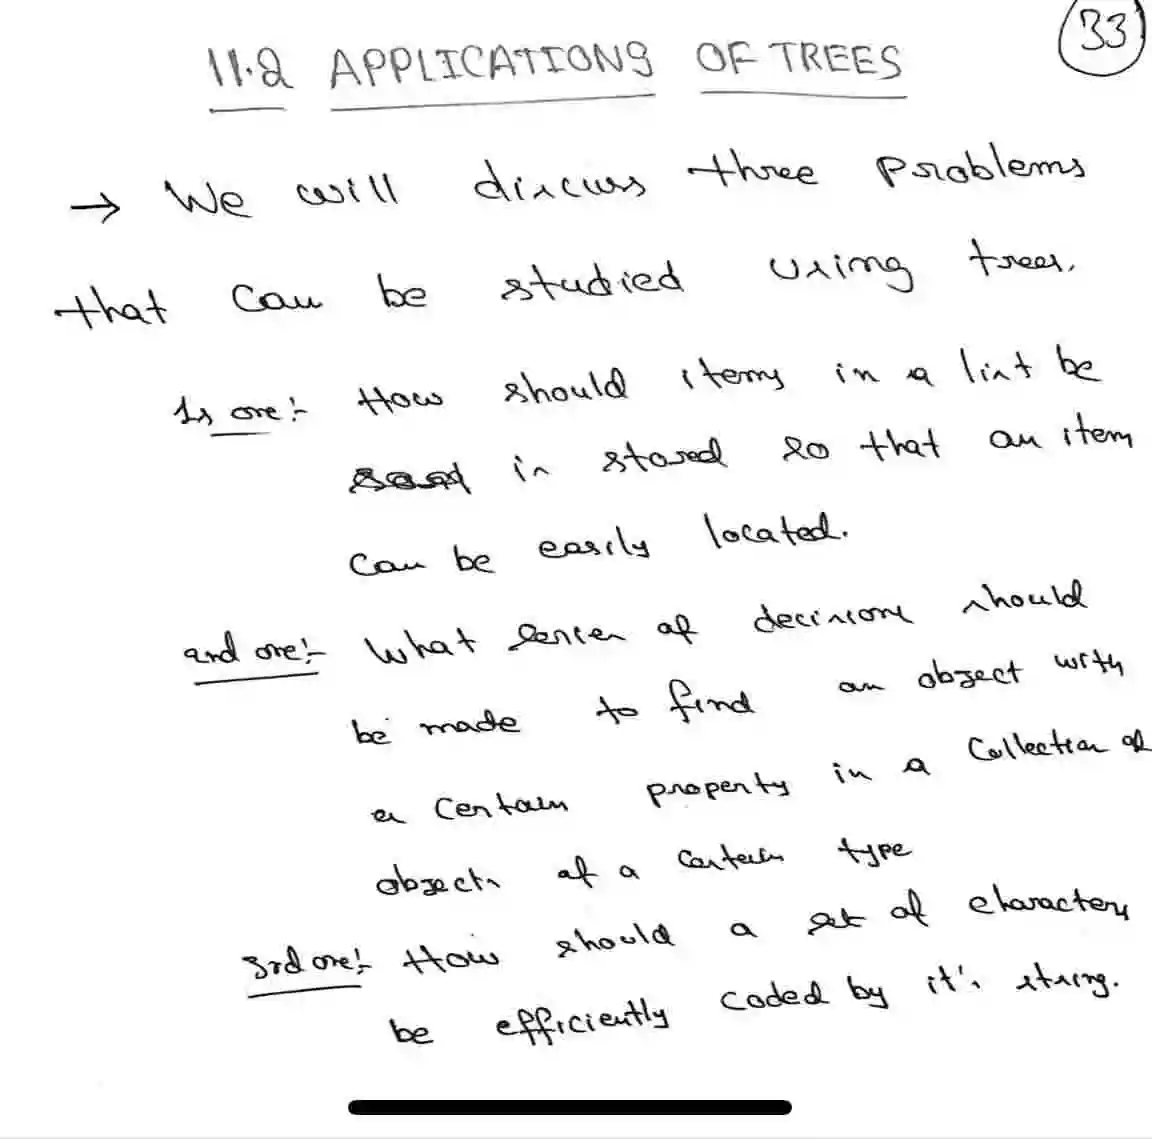 33
11.2 APPLICATIONS OF TREES
→ We will discuss three problems
that can be studied using trees.
1s one:- How should items in a list be
in stored so that an item
can be easily located.
2nd one:- What series of decisions should
be made to find an object with
a certain property in a collection of
objects of a certain type
3rd one:- How should a set of characters
be efficiently coded by it's string.